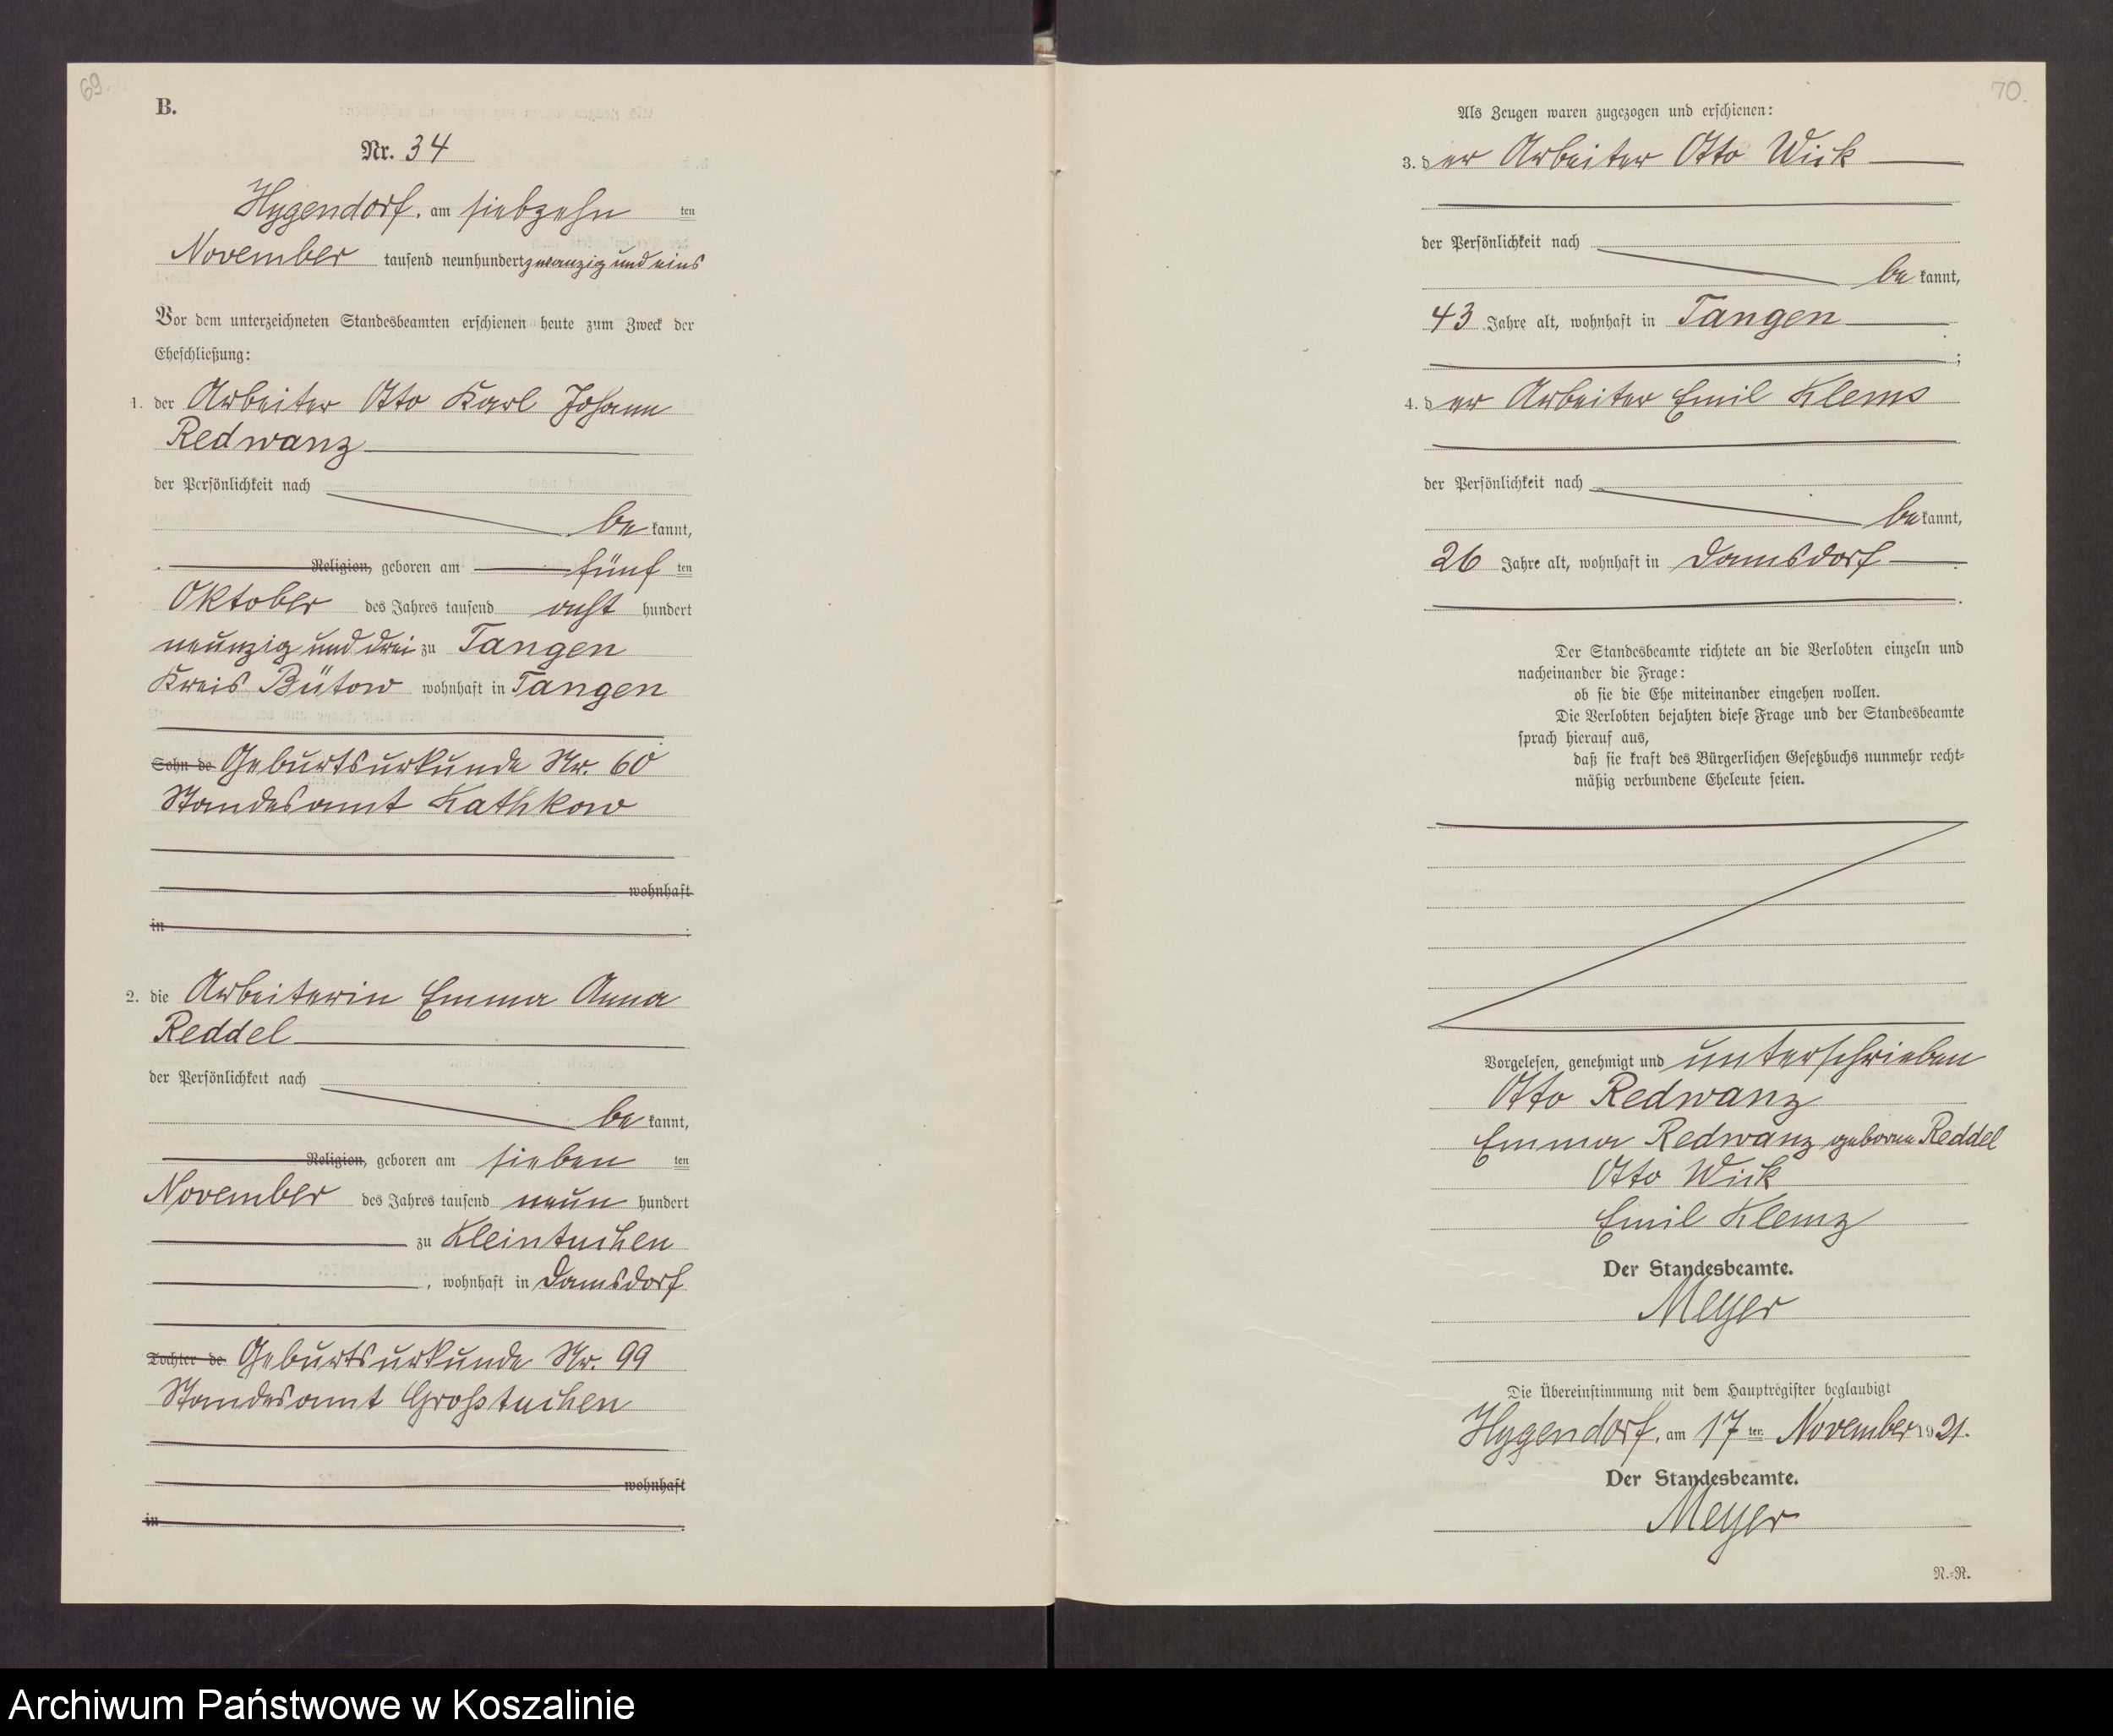 69.
B.
Nr. 34
Hygendorf, am siebzehn ten
November tausend neunhundert zwanzig und eins
Vor dem unterzeichneten Standesbeamten erschienen heute zum Zweck der
Eheschließung:
1. der Arbeiter Otto Karl Johann
Redwanz
der Persönlichkeit nach
be kannt,
Religion, geboren am fünf ten
Oktober des Jahres tausend acht hundert
neunzig und drei zu Tangen
Kreis Bütow wohnhaft in Tangen
Sohn de Geburtsurkunde Nr. 60
Standesamt Kathkow
wohnhaft
in
2. die Arbeiterin Emma Anna
Reddel
der Persönlichkeit nach
be kannt,
Religion, geboren am sieben ten
November des Jahres tausend neun hundert
zu Kleintuchen
, wohnhaft in Damsdorf
Tochter de Geburtsurkunde Nr. 99
Standesamt Großtuchen
wohnhaft
in
70.
Als Zeugen waren zugezogen und erschienen:
3. der Arbeiter Otto Wick
der Persönlichkeit nach
be kannt,
43 Jahre alt, wohnhaft in Tangen
;
4. der Arbeiter Emil Klems
der Persönlichkeit nach
be kannt,
26 Jahre alt, wohnhaft in Damsdorf
Der Standesbeamte richtete an die Verlobten einzeln und
nacheinander die Frage:
ob sie die Ehe miteinander eingehen wollen.
Die Verlobten bejahten diese Frage und der Standesbeamte
sprach hierauf aus,
daß sie kraft des Bürgerlichen Gesetzbuchs nunmehr recht-
mäßig verbundene Eheleute seien.
Vorgelesen, genehmigt und unterschrieben
Otto Redwanz
Emma Redwanz geboren Reddel
Otto Wick
Emil Klemz
Der Standesbeamte.
Meyer
Die Übereinstimmung mit dem Hauptregister beglaubigt
Hygendorf, am 17 ten November 1921.
Der Standesbeamte.
Meyer
N.-R.
Archiwum Państwowe w Koszalinie